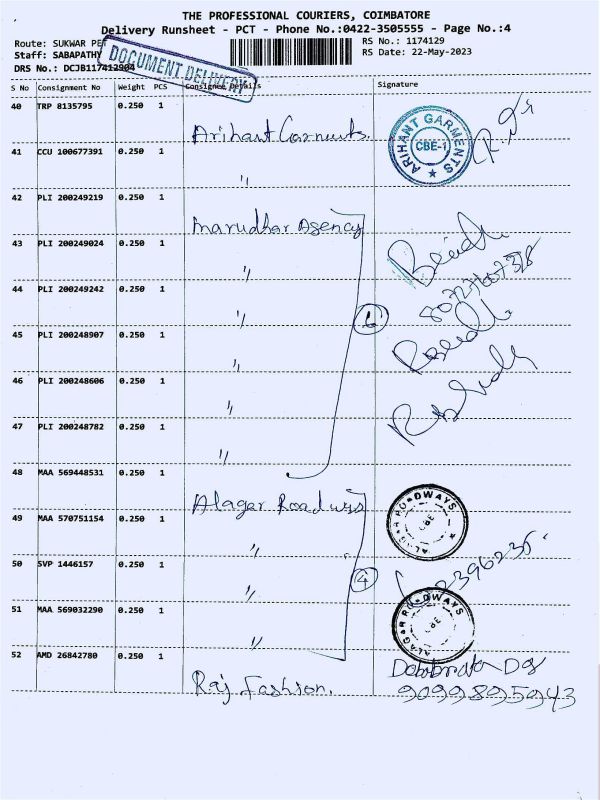 THE PROFESSIONAL COURIERS, COIMBATORE
Delivery Runsheet - PCT - Phone No.:0422-3505555 - Page No.:4
Route: SUKWAR PET
RS No.: 1174129
Staff: SABAPATHY
RS Date: 22-May-2023
DRS No.: DCJB117412904
DOCUMENT DELIVERY
S No Consignment No Weight PCS Consignee Details Signature
40 TRP 8135795 0.250 1
Arihant Garments.
ARIHANT GARMENTS
CBE-1
41 CCU 100677391 0.250 1
"
42 PLI 200249219 0.250 1
Marudhar Agency
43 PLI 200249024 0.250 1
"
44 PLI 200249242 0.250 1
"
6
45 PLI 200248907 0.250 1
"
46 PLI 200248606 0.250 1
"
47 PLI 200248782 0.250 1
"
48 MAA 569448531 0.250 1
Alagar Roadways
ALAGAR ROADWAYS
CBE
49 MAA 570751154 0.250 1
"
50 SVP 1446157 0.250 1
"
4
51 MAA 569032290 0.250 1
"
ALAGAR ROADWAYS
CBE
52 AMD 26842780 0.250 1
Raj Fashion.
9099895943